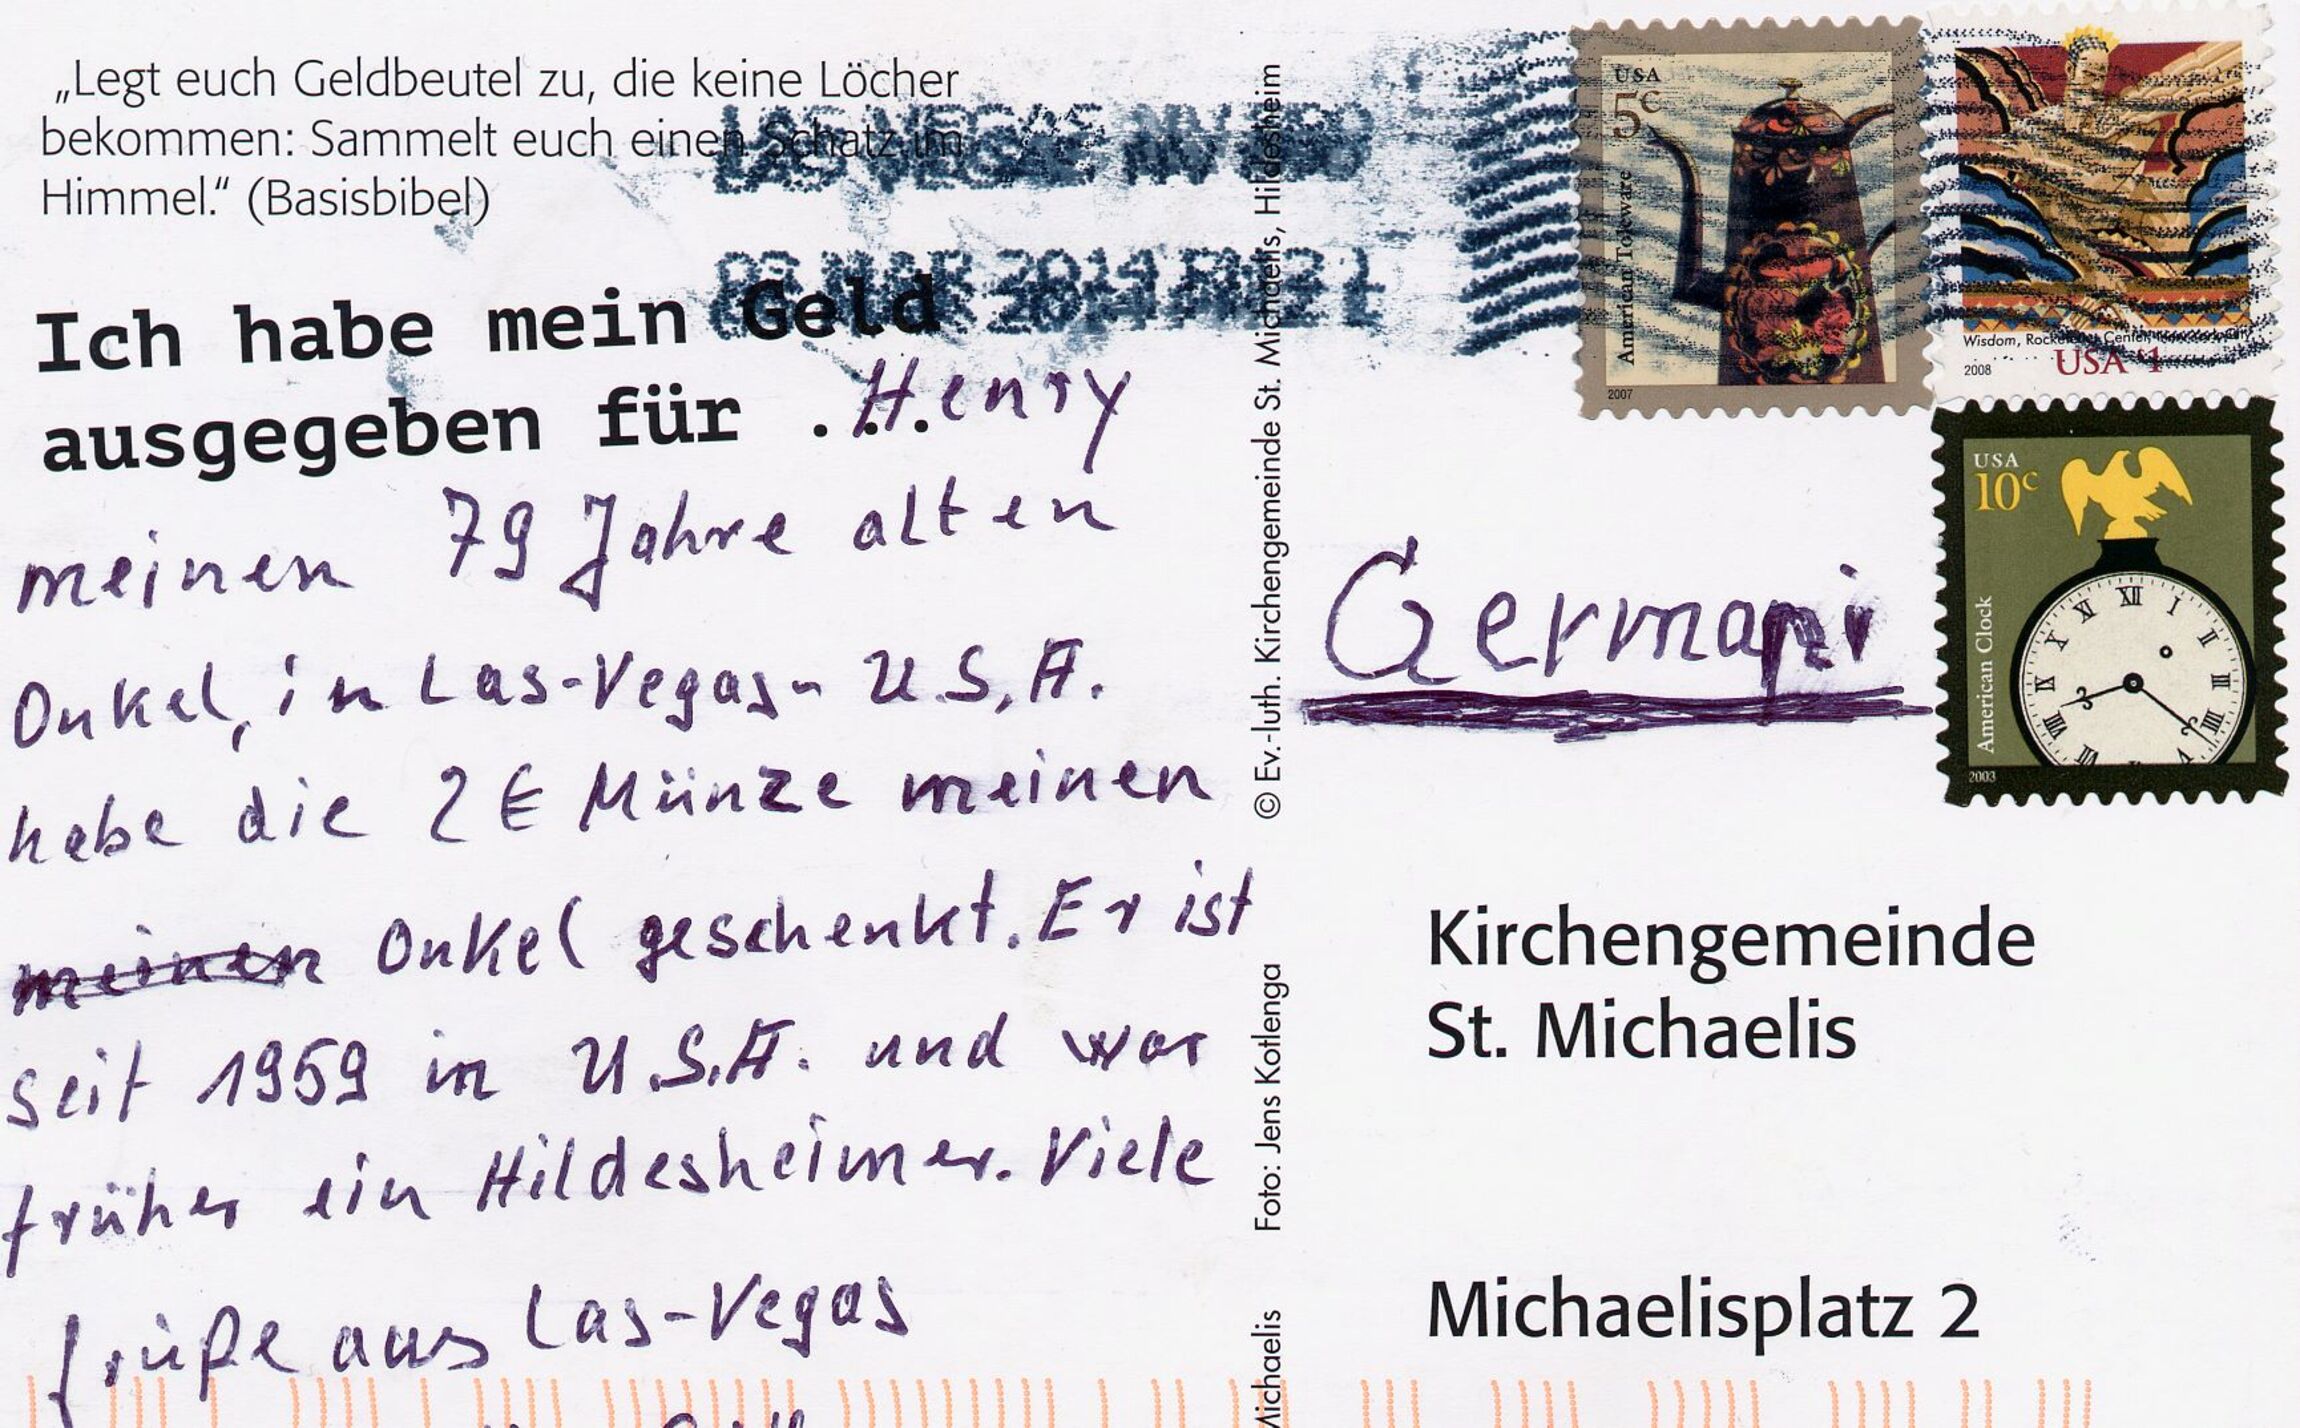 „Legt euch Geldbeutel zu, die keine Löcher
bekommen: Sammelt euch einen Schatz im
Himmel.“ (Basisbibel)
LAS VEGAS NV
MAR 2014 PM 2 L
Ich habe mein Geld
ausgegeben für ... Henry
meinen 79 Jahre alten
Onkel, in Las-Vegas- U.S.A.
habe die 2 € Münze meinen
meinen Onkel geschenkt. Er ist
seit 1959 in U.S.A. und war
früher ein Hildesheimer. Viele
grüße aus Las-Vegas
© Ev.-luth. Kirchengemeinde St. Michaelis, Hildesheim
Foto: Jens Kotlenga
Michaelis
USA
5c
American Toleware
2007
Wisdom, Rockefeller Center,
2008
USA $1
USA
10c
American Clock
XII
I
II
III
IIII
V
VII
VIII
IX
X
XI
2003
Germani
Kirchengemeinde
St. Michaelis
Michaelisplatz 2